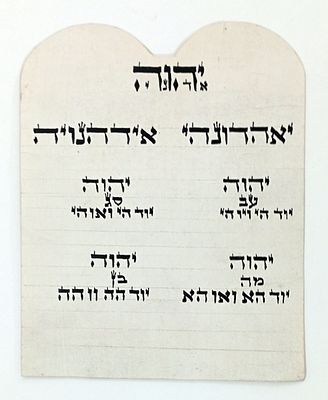 יהוה
אדני
יאהדונהי אידהנויה
יהוה יהוה
עב סג
יוד הי ויו הי יוד הי ואו הי
יהוה יהוה
מה בן
יוד הא ואו הא יוד הה וו הה